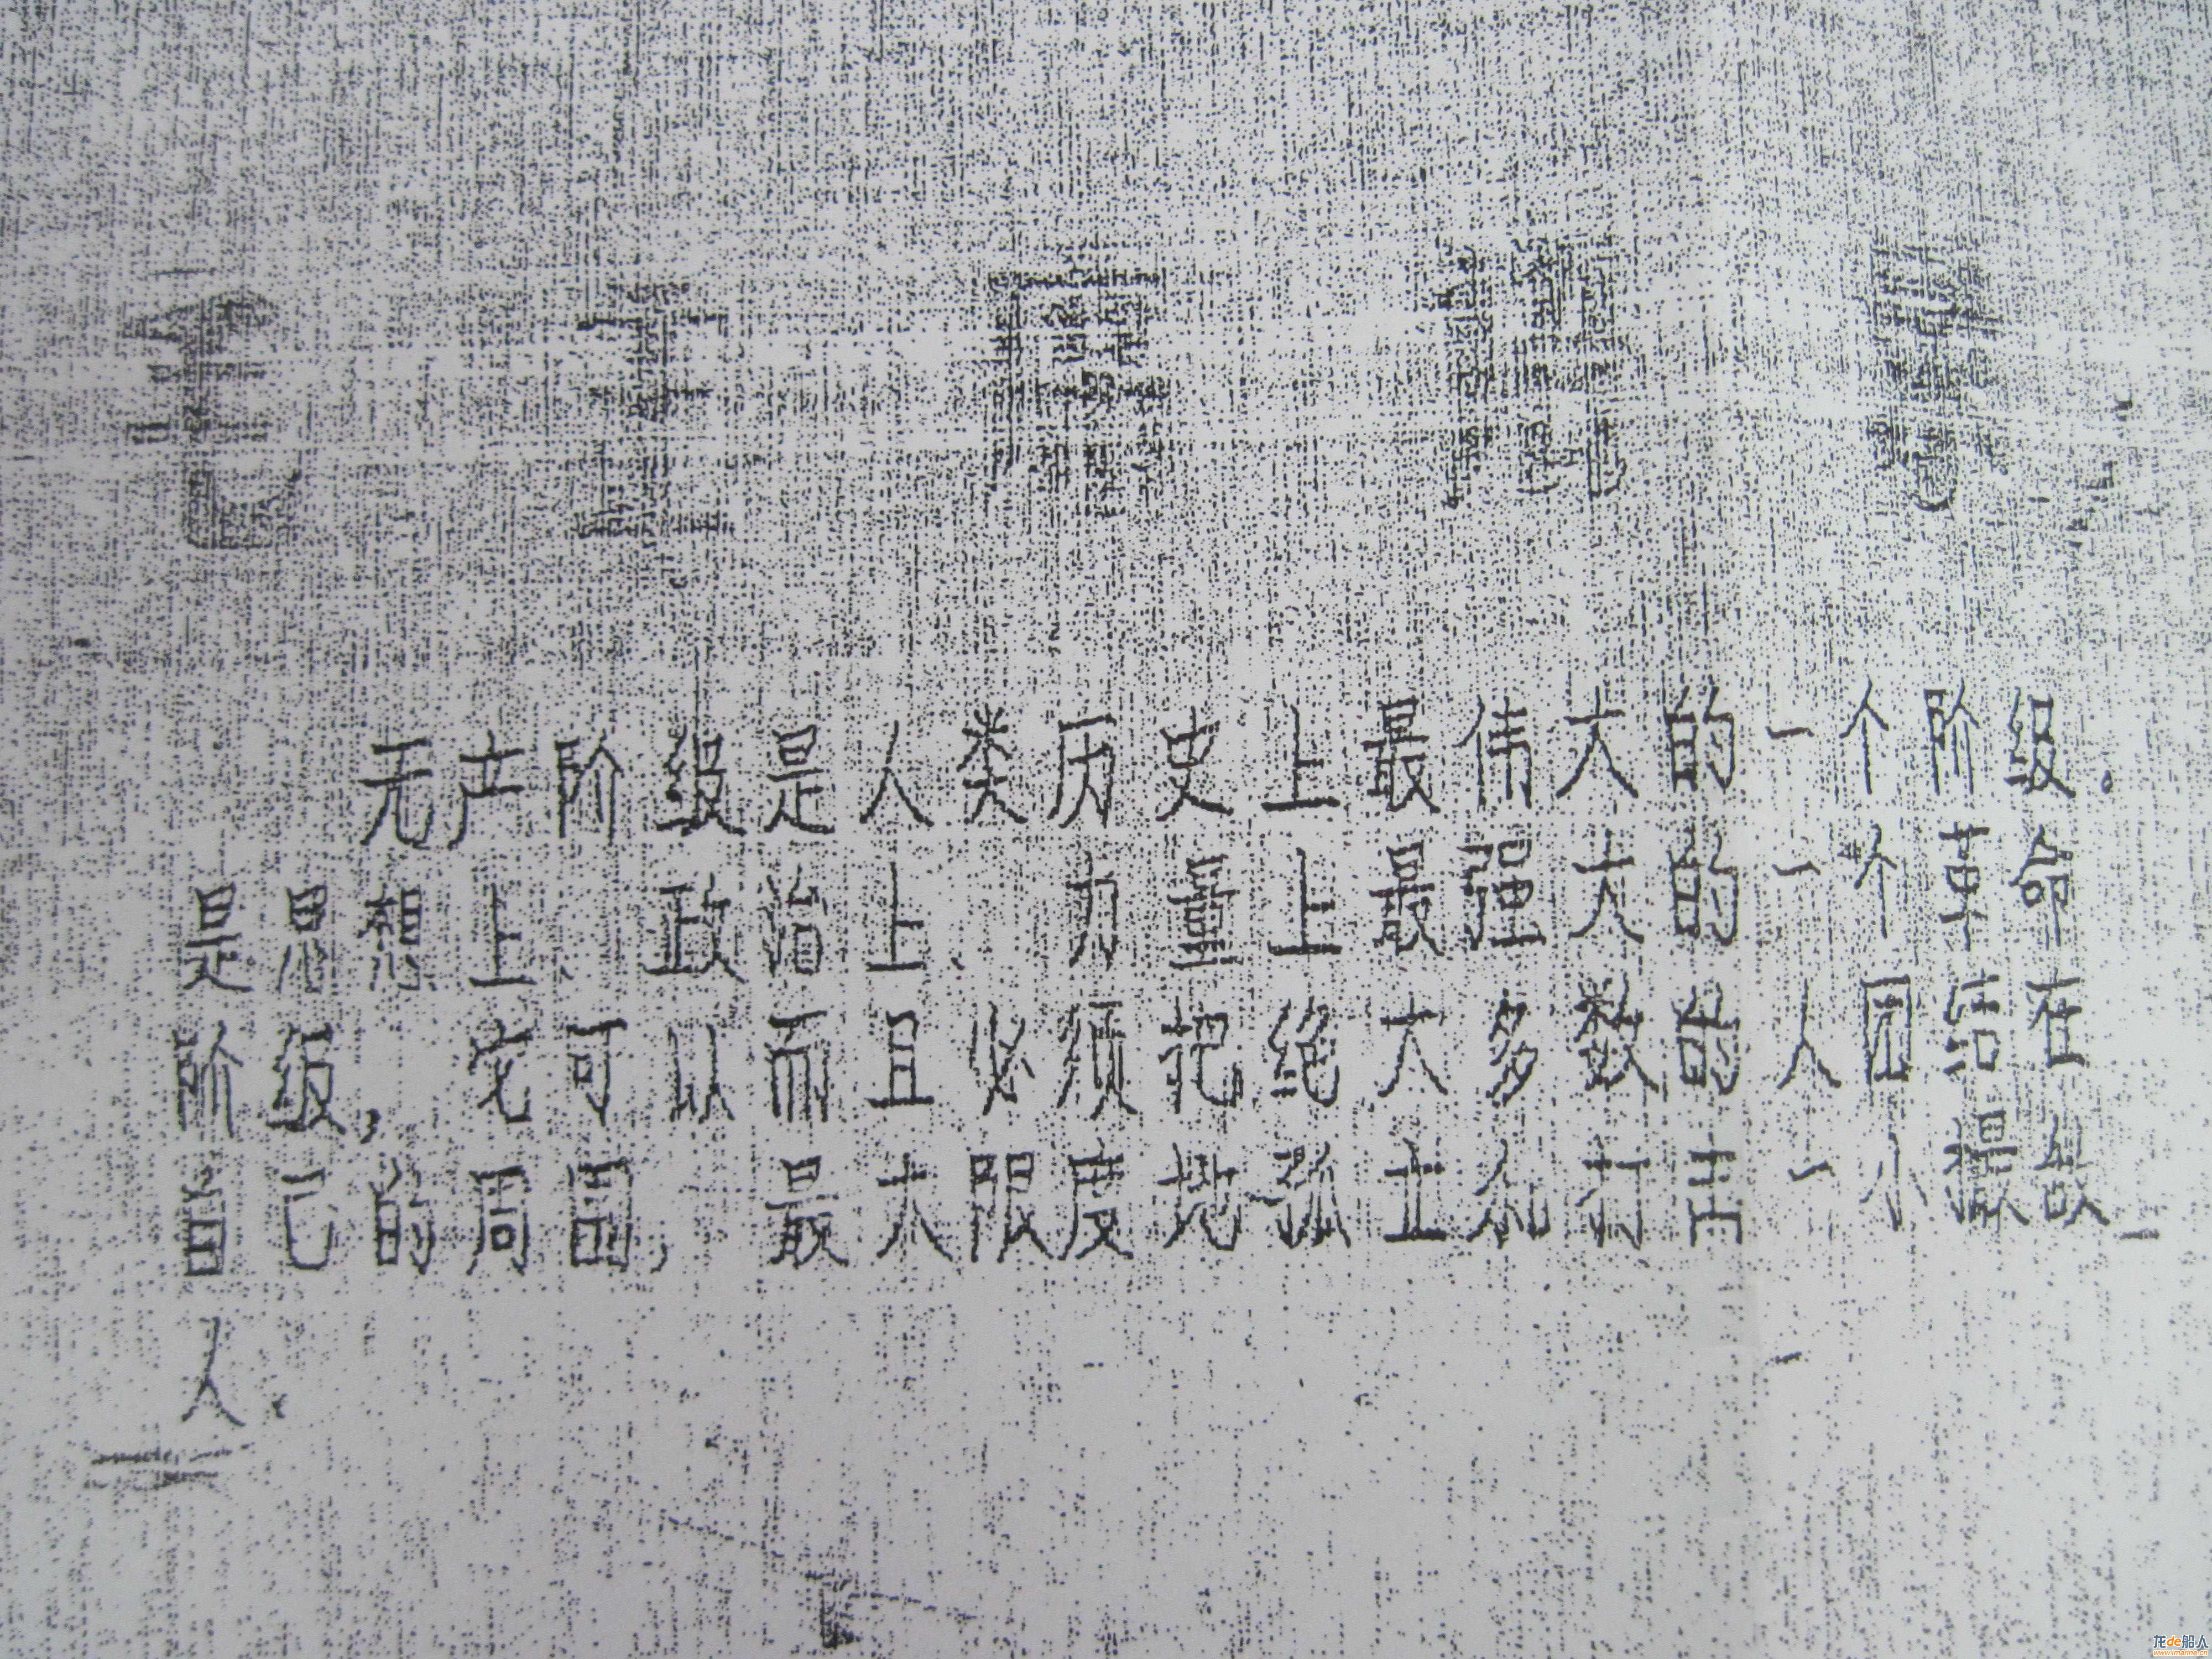 毛主席
无产阶级是人类历史上最伟大的一个阶级。
是思想上、政治上、力量上最强大的一个革命
阶级，它可以而且必须把绝大多数的人团结在
自己的周围，最大限度地孤立和打击一小撮敌
人。
龙de船人
www.imarine.cn